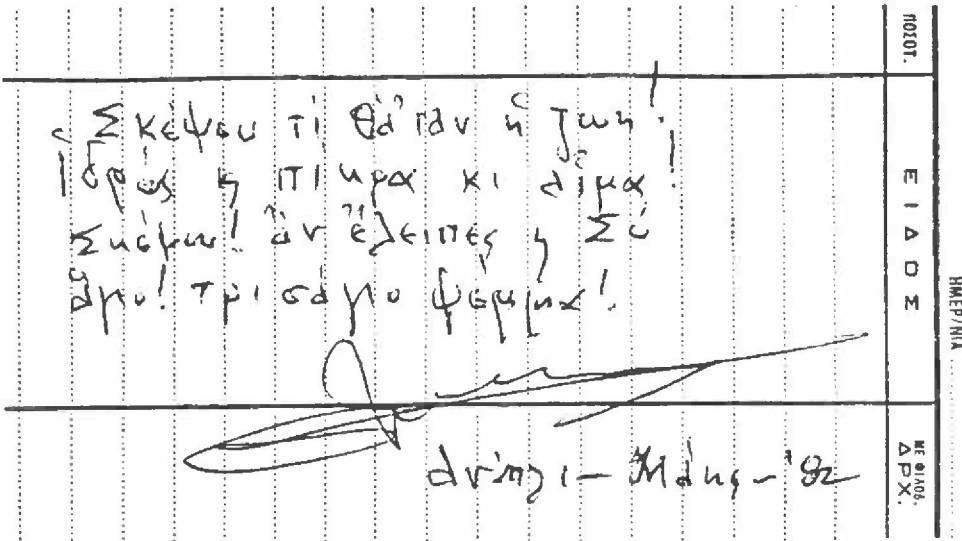 Σκέψου τί θἆταν ἡ ζωή!
Ἱδρώς ἡ πίκρα κι αἷμα!
Σκέψου! ἄν ἔλειπες ἡ Σύ
ἅγιο! τρισάγιο ψέμμα!
Μάης - '82
ΠΟΣΟΤ.
ΕΙΔΟΣ
ΔΡΧ.
ΗΜΕΡ/ΝΙΑ